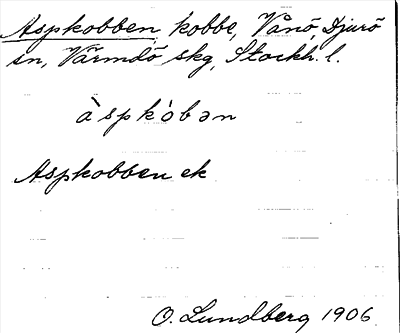 Aspkobben, kobbe, Vånö, Djurö
sn, Värmdö skg, Stockh. l.
àspkòbən
Aspkobben ek
O. Lundberg 1906